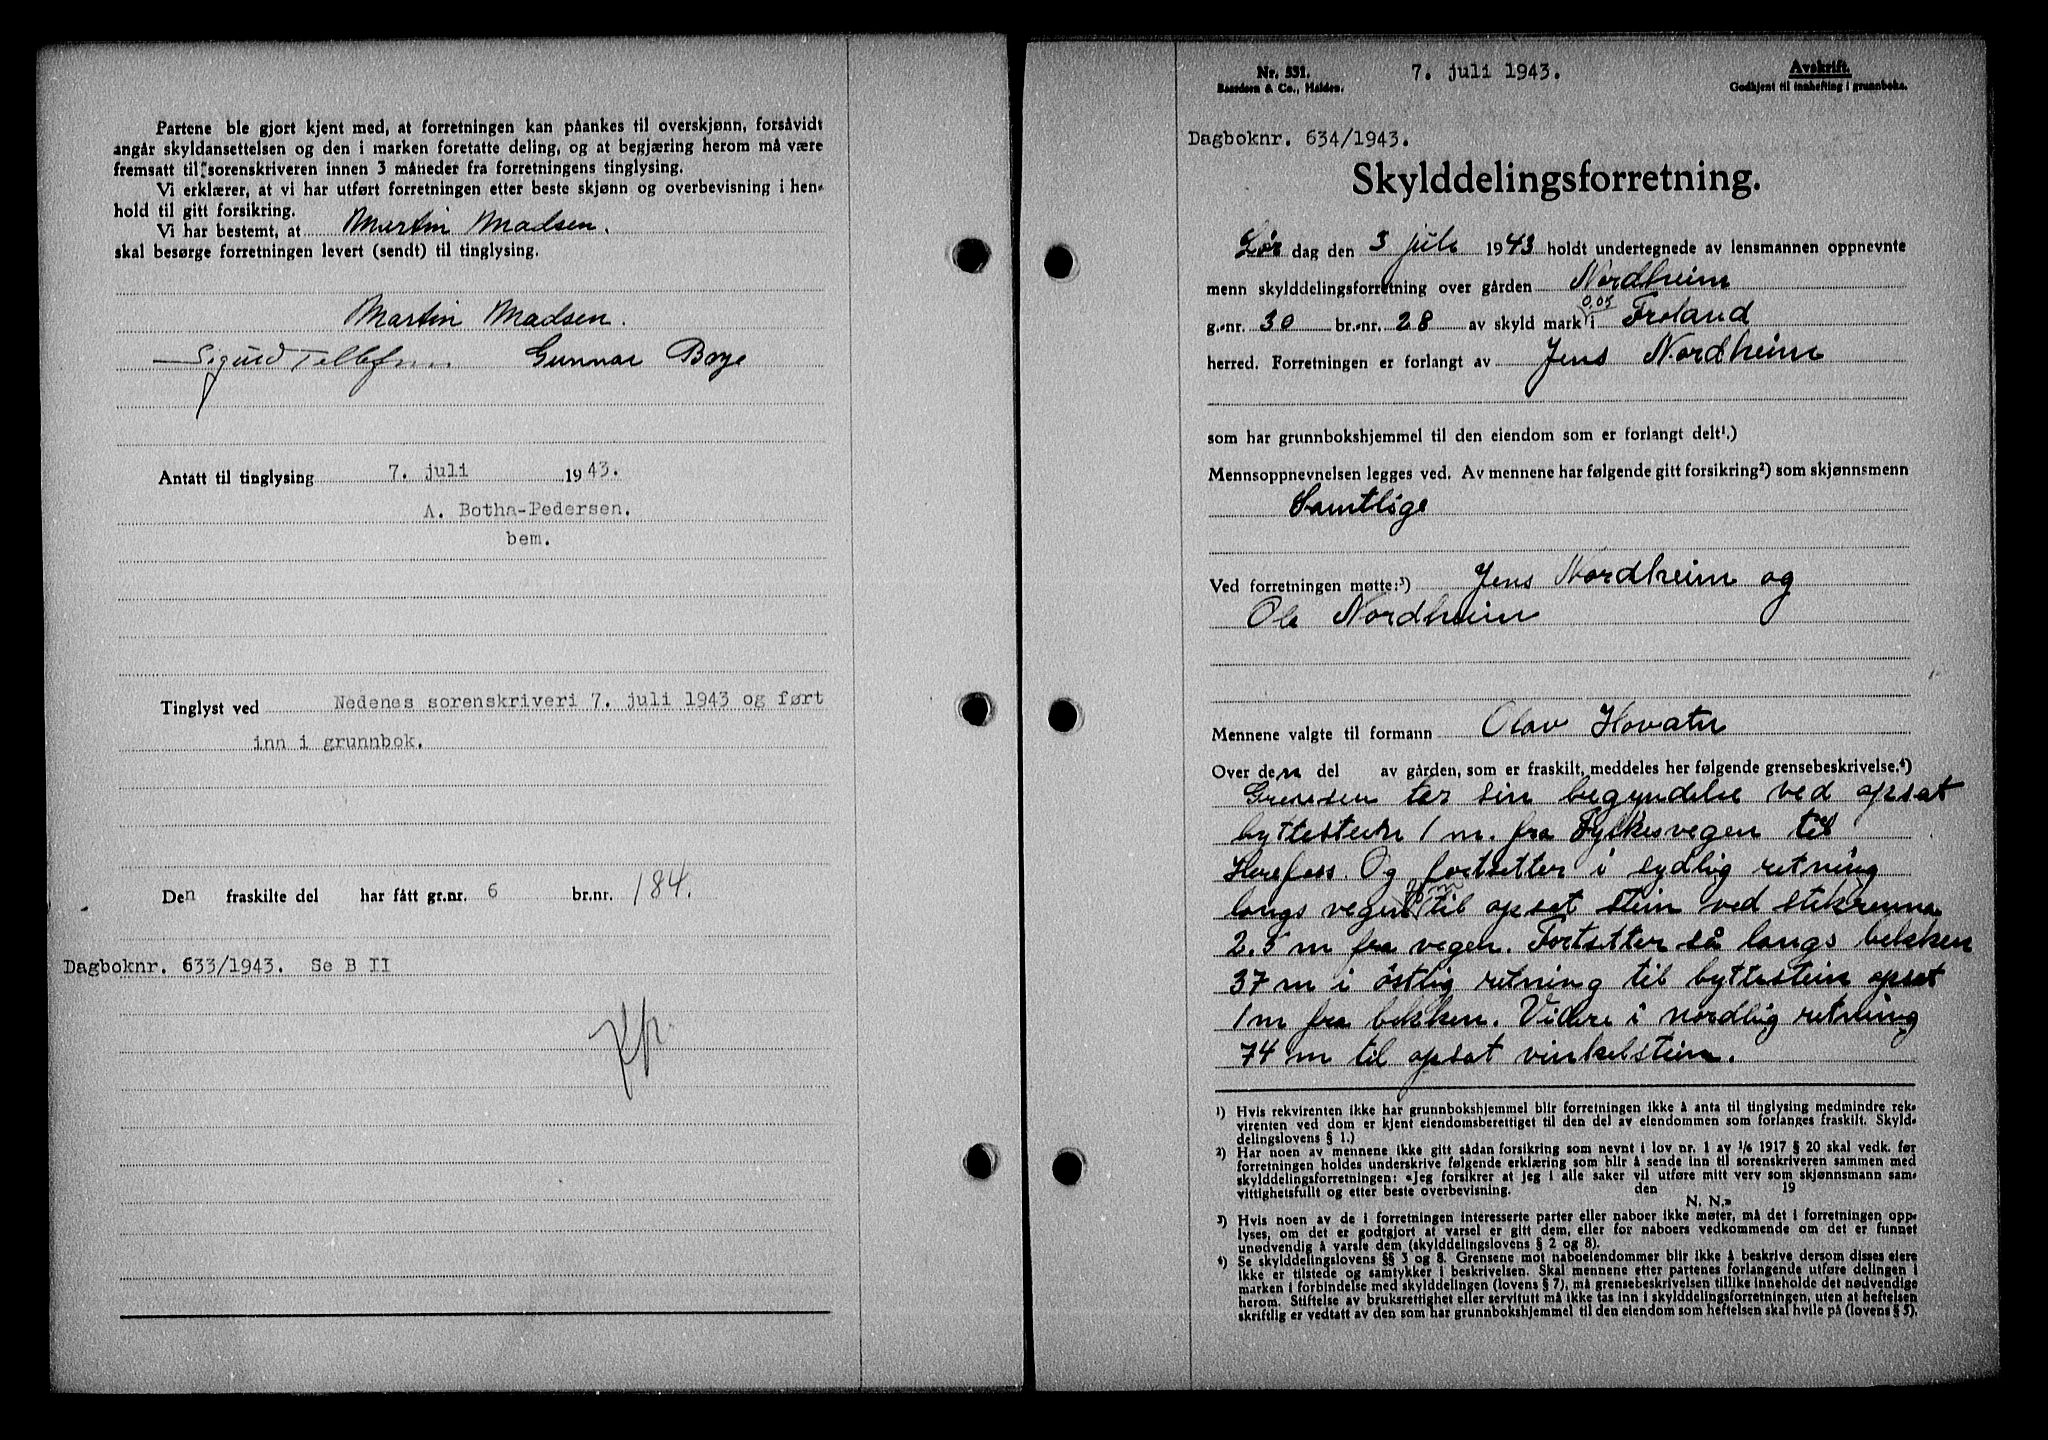 Partene ble gjort kjent med, at forretningen kan påankes til overskjønn, forsåvidt
angår skyldansettelsen og den i marken foretatte deling, og at begjæring herom må være
fremsatt til sorenskriveren innen 3 måneder fra forretningens tinglysing.
Vi erklærer, at vi har utført forretningen etter beste skjønn og overbevisning i hen-
hold til gitt forsikring.
Vi har bestemt, at Martin Madsen.
skal besørge forretningen levert (sendt) til tinglysing.
Martin Madsen.
Sigurd Gunnar Boye
Antatt til tinglysing 7. juli 1943.
A. Botha-Pedersen.
bem.
Tinglyst ved Nedenes sorenskriveri 7. juli 1943 og ført
inn i grunnbok.
Den fraskilte del har fått gr.nr. 6 br.nr. 184.
Dagboknr. 633/1943. Se B II
Nr. 531.
7. juli 1943.
Avskrift.
Godkjent til innhefting i grunnboka.
Dagboknr. 634/1943.
Skylddelingsforretning.
Lør dag den 3 juli 1943 holdt undertegnede av lensmannen oppnevnte
menn skylddelingsforretning over gården Nordheim
g.-nr. 30 br.-nr. 28 av skyld mark 0,03 i Froland
herred. Forretningen er forlangt av Jens Nordheim
som har grunnbokshjemmel til den eiendom som er forlangt delt¹.)
Mennsoppnevnelsen legges ved. Av mennene har følgende gitt forsikring²) som skjønnsmenn
Samtlige
Ved forretningen møtte:³) Jens Nordheim og
Ole Nordheim
Mennene valgte til formann Olav Hovatn
Over den del av gården, som er fraskilt, meddeles her følgende grensebeskrivelse.⁴)
Grensen tar sin begyndelse ved opsat
byttestein 1 m. fra Fylkesvegen til
Herefoss. Og fortsetter i sydlig retning
langs vegen til opsat stein ved stikrenna
2.5 m fra vegen. Fortsetter så langs bekken
37 m i östlig retning til byttestein opsat
1 m fra bekken. Videre i nordlig retning
74 m til opsat vinkelstein.
¹) Hvis rekvirenten ikke har grunnbokshjemmel blir forretningen ikke å anta til tinglysing medmindre rek-
virenten ved dom er kjent eiendomsberettiget til den del av eiendommen som forlanges fraskilt. Skyld-
delingslovens § 1.)
²) Har noen av mennene ikke gitt sådan forsikring som nevnt i lov nr. 1 av 1/6 1917 § 20 skal vedk. før
forretningen holdes underskrive følgende erklæring som blir å sende inn til sorenskriveren sammen med
skylddelingsforretningen: «Jeg forsikrer at jeg i alle saker vil utføre mitt verv som skjønnsmann sam-
vittighetsfullt og etter beste overbevisning. den 19
N. N.»
³) Hvis noen av de i forretningen interesserte parter eller naboer ikke møter, må det i forretningen opp-
lyses, om det er godtgjort at varsel er gitt dem, eller for naboers vedkommende om det er funnet
unødvendig å varsle dem (skylddelingslovens § 2 og 8).
⁴) Se skylddelingslovens §§ 3 og 8. Grensene mot naboeiendommer blir ikke å beskrive dersom disses eiere
ikke er tilstede og samtykker i beskrivelsen. Skal mennene etter partenes forlangende utføre delingen i
marken i forbindelse med skylddelingen (lovens § 7), må grensebeskrivelsen tillike inneholde det nødvendige
herom. Stiftelse av bruksrettighet eller servitutt må ikke tas inn i skylddelingsforretningen, uten at heftelsen
skriftlig er vedtatt av den som har grunnbokshjemmel til den eiendom som heftelsen skal hvile på (lovens § 5).